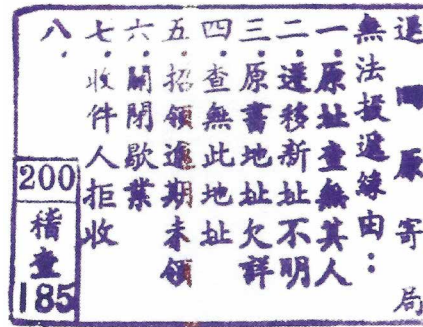 退回原寄局
無法投遞緣由：
一．原址查無其人
二．遷移新址不明
三．原書地址欠詳
四．查無此地址
五．招領逾期未領
六．關閉歇業
七．收件人拒收
八．
200
稽查
185